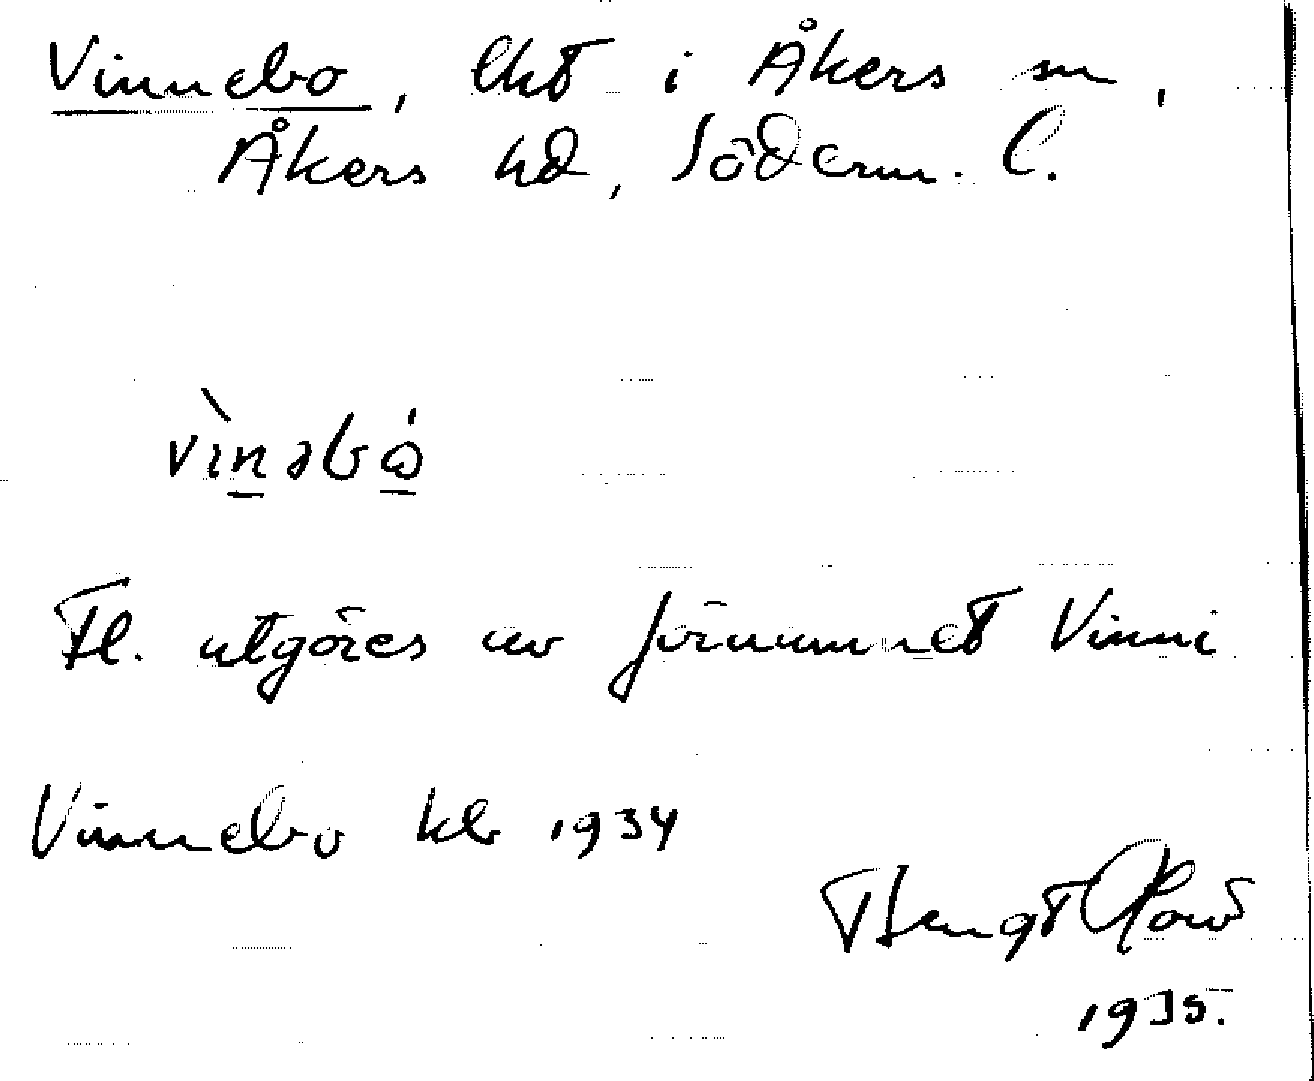 Vinnebo, lht i Åkers sn,
Åkers hd, Söderm. l.
vìnəbó
Fl. utgöres av förnamnet Vinni
Vinnebo kb 1934
Bengt
1935.